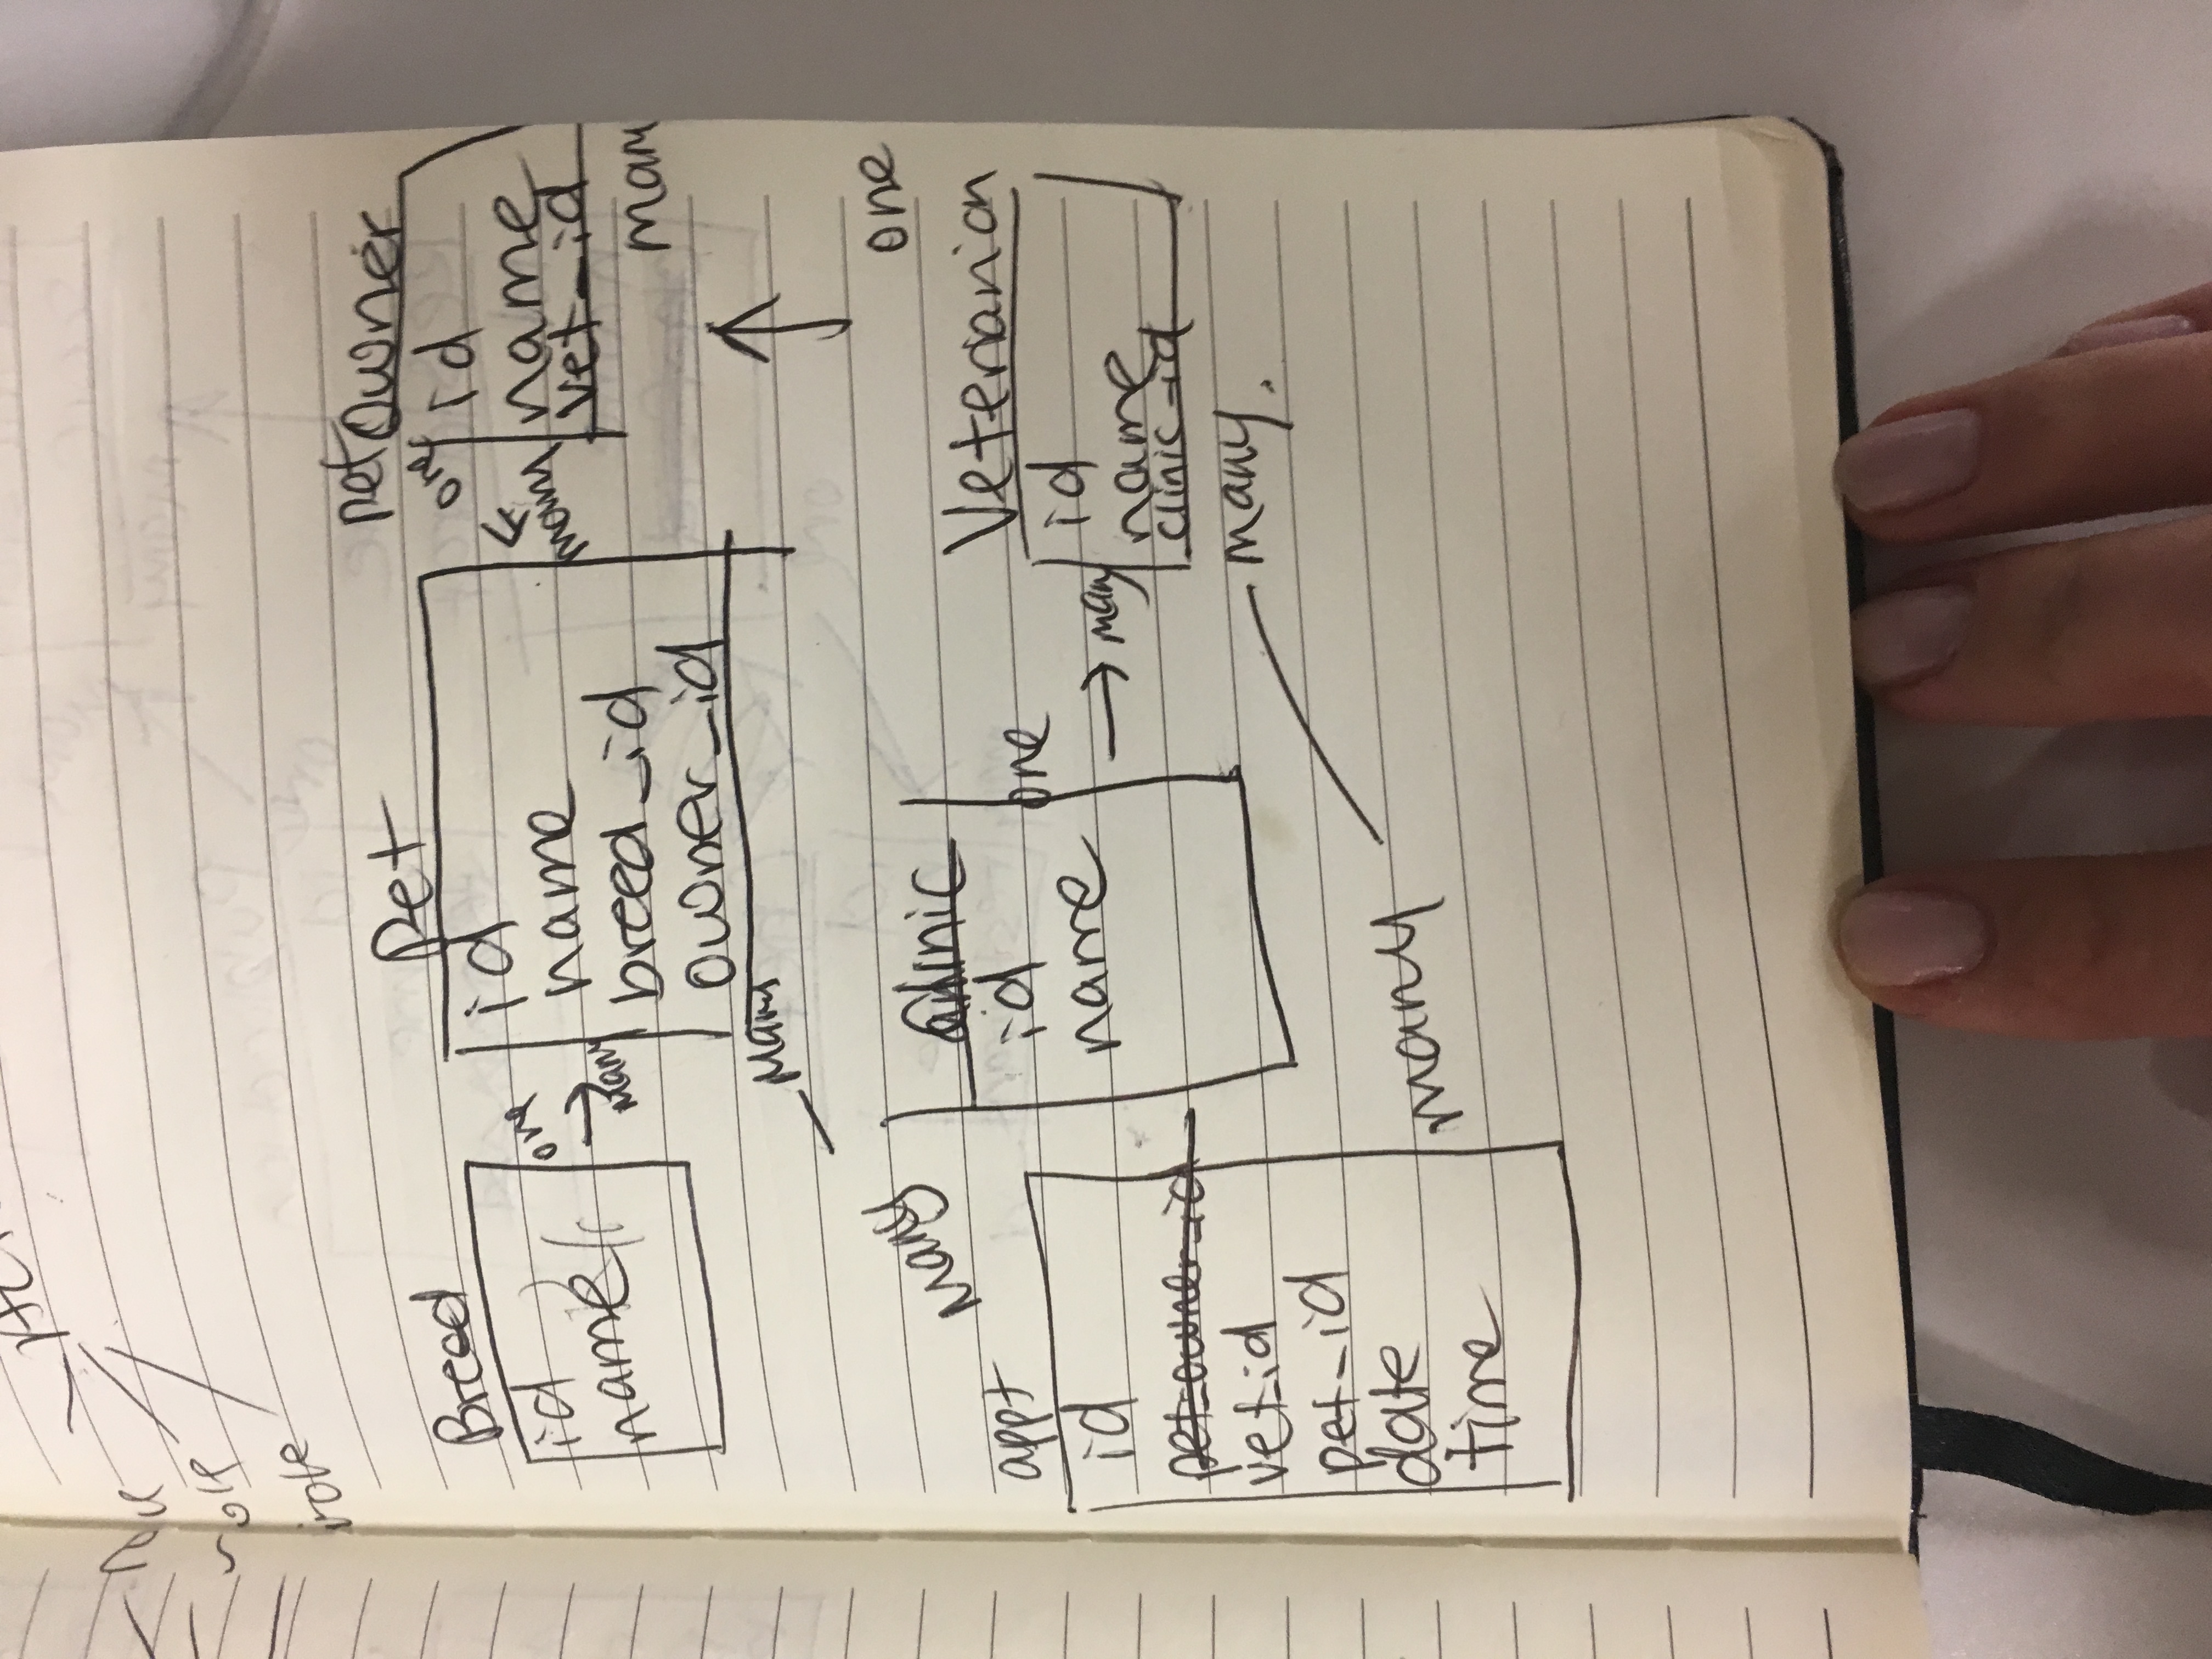 role
Breed
id
name
one
Many
Pet
id
name
breed_id
owner_id
pet Owner
id
name
vet_id
one
many
Many
Many
appt
id
pet-owner-id
vet_id
pet_id
date
time
Clinic
id
name
one
many
one
Veterianian
id
name
clinic_id
many.
many